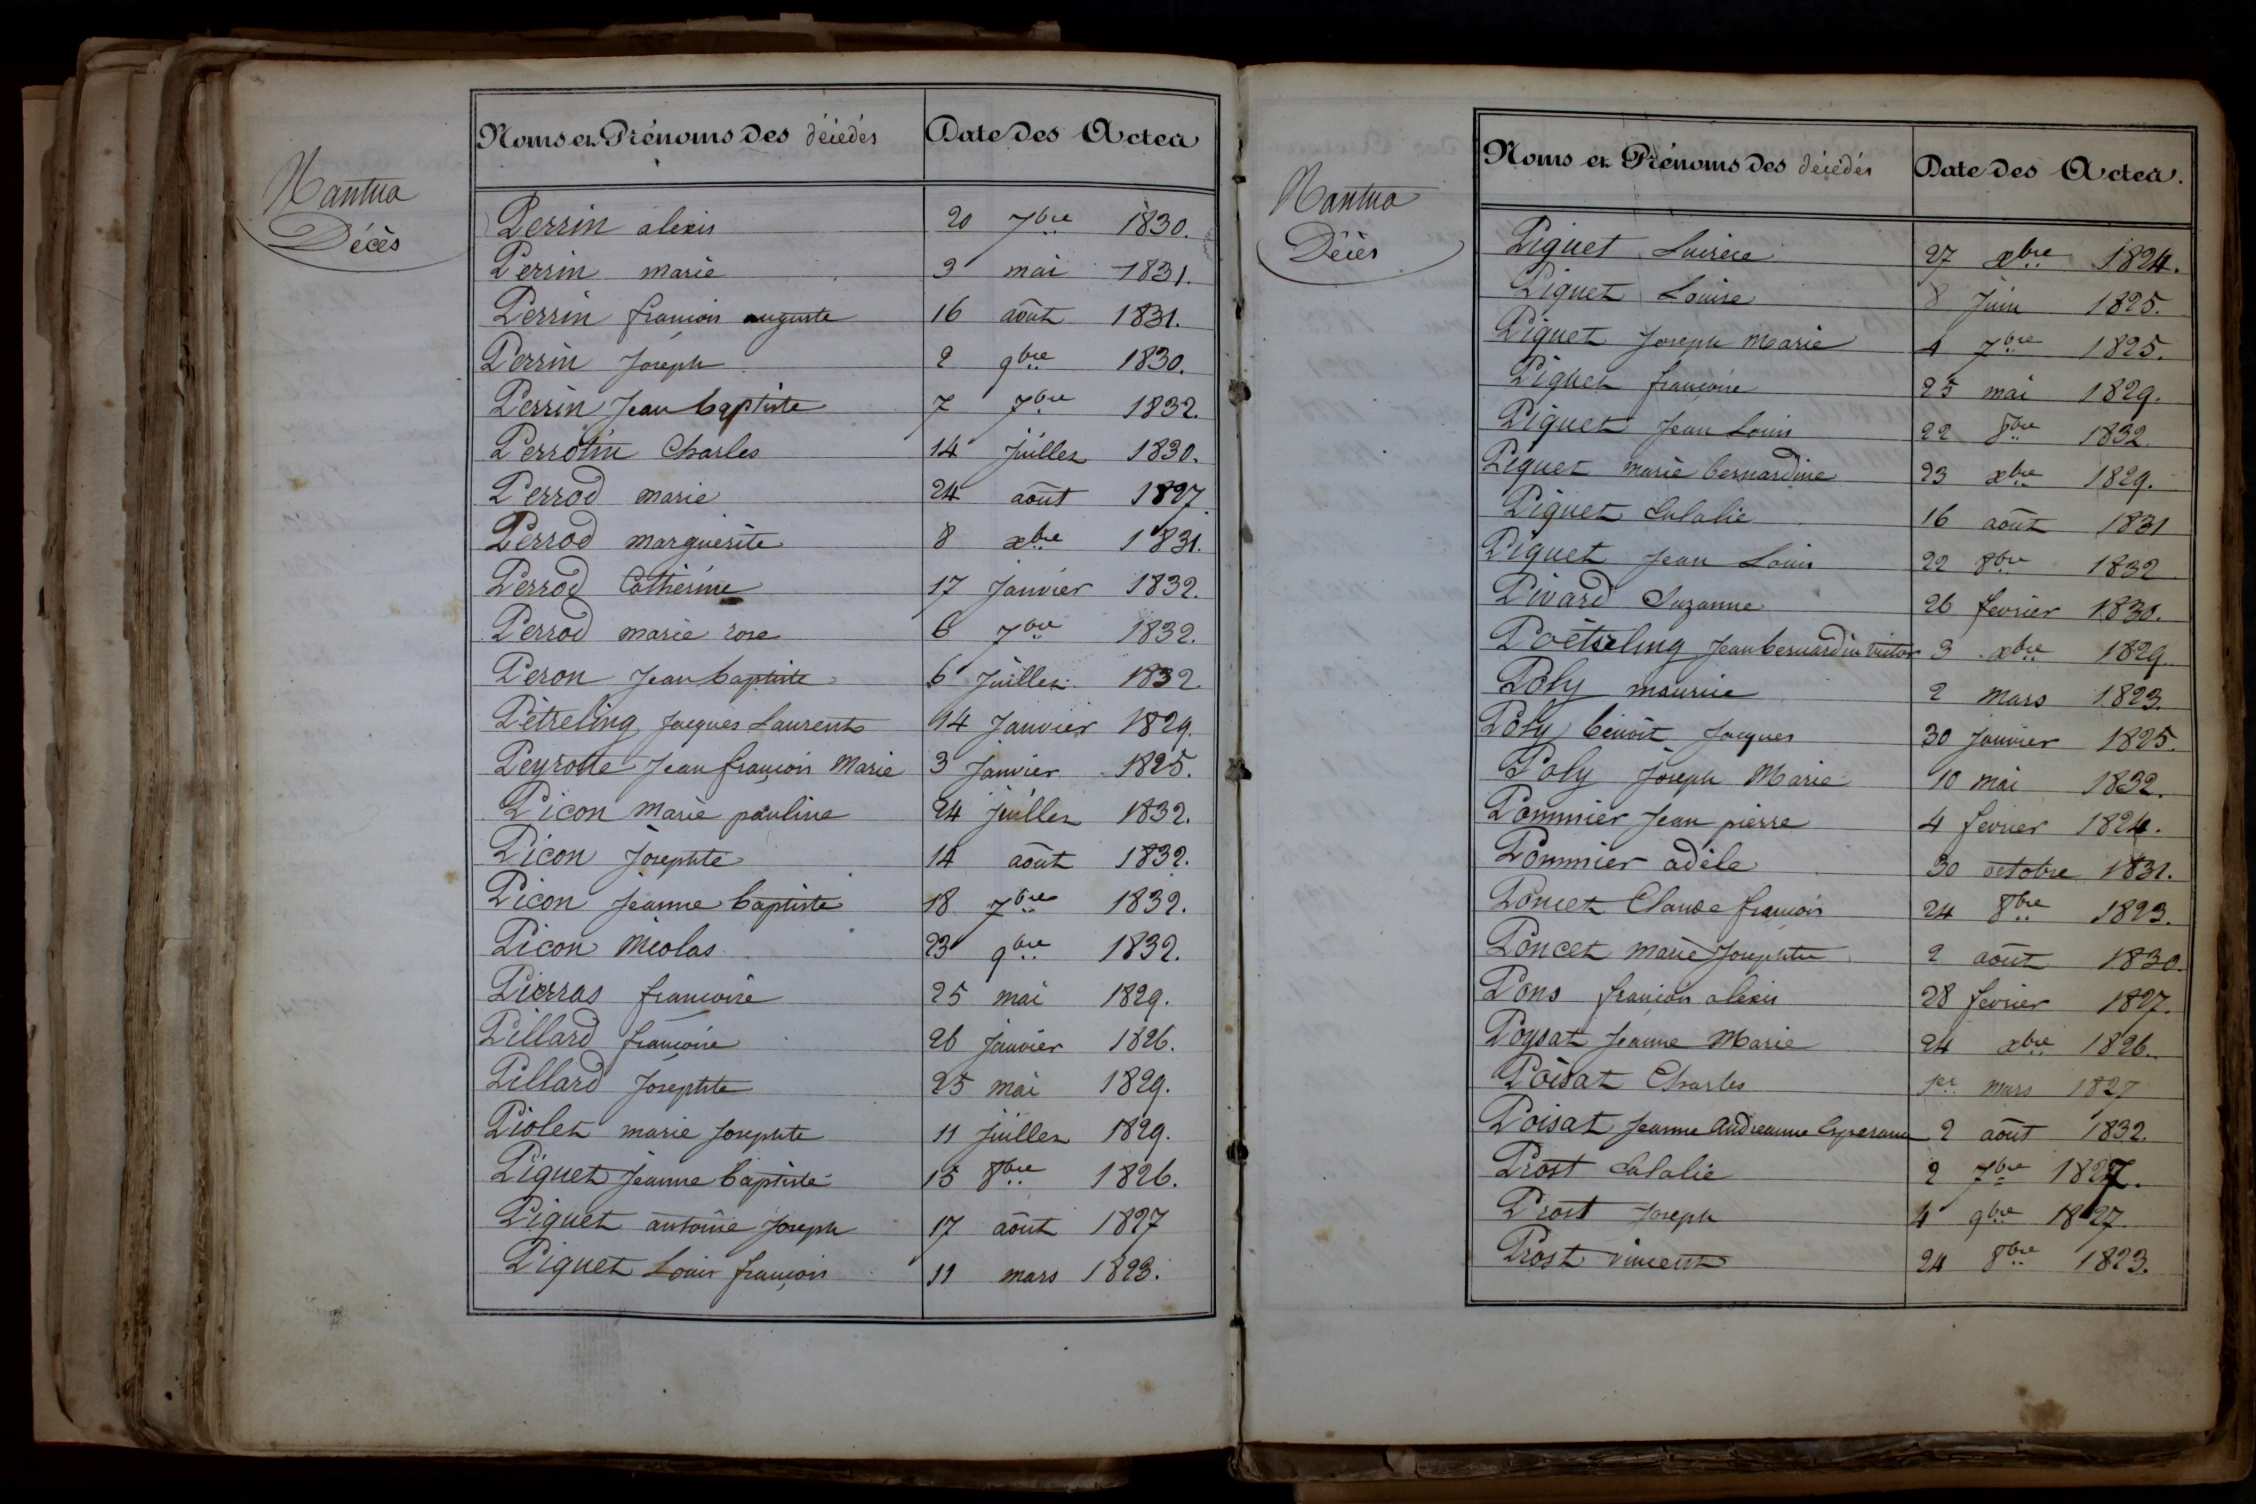 Nantua
Décès
Noms et Prénoms des décédés Date des Actes
Perrin alexis 20 7bre 1830.
Perrin marie 3 mai 1831.
Perrin francois auguste 16 août 1831.
Perrin Joseph 2 9bre 1830.
Perrin Jean baptiste 7 7bre 1832.
Perrotin Charles 14 juillet 1830.
Perrod marie 24 août 1827
Perrod marguerite 8 xbre 1831.
Perrod Catherine 17 Janvier 1832.
Perrod marie rose 6 7bre 1832.
Peron Jean baptiste 6 Juillet 1832.
Petreling Jacques Laurent 14 Janvier 1829.
Peyrotte Jean françois Marie 3 Janvier 1825.
Picon Marie pauline 24 juillet 1832.
Picon Josephte 14 août 1832.
Picon Jeanne baptiste 18 7bre 1832.
Picon Nicolas 23 9bre 1832.
Pierras francoise 25 mai 1829.
Pillard francoise 26 janvier 1826.
Pillard Josephte 25 mai 1829.
Piolet marie Josephte 11 Juillet 1829.
Piquet Jeanne baptiste 15 8bre 1826.
Piquet antoine Joseph 17 août 1827
Piquet Louis françois 11 mars 1823.
Nantua
Décès
Noms et Prénoms des décédés Date des Actes.
Piquet 27 xbre 1824.
Piquet Louise 8 Juin 1825.
Piquet Joseph Marie 4 7bre 1825.
Piquet françoise 25 mai 1829.
Piquet Jean Louis 22 8bre 1832.
Piquet marie bernardine 23 xbre 1829.
Piquet Eulalie 16 août 1831
Piquet Jean Louis 22 8bre 1832
Pivard Suzanne 26 fevrier 1830.
Poëtreling Jean bernardin victor 3 xbre 1829
Poly maurice 2 mars 1823.
Poly benoit Jacques 30 janvier 1825.
Poly joseph Marie 10 mai 1832.
Pommier Jean pierre 4 fevrier 1824.
Pommier adèle 30 octobre 1831.
Poncet Claude francois 24 8bre 1823.
Poncet Marie Josephte 2 août 1830.
Pons françois alexis 28 fevrier 1827.
Poysat Jeanne Marie 24 xbre 1826.
Poisat Charles 1er mars 1827
Poisat Jeanne Andreanne Esperance 2 août 1832.
Prost Eulalie 2 7bre 1827.
Prost Joseph 4 9bre 1827.
Prost vincent 24 8bre 1823.